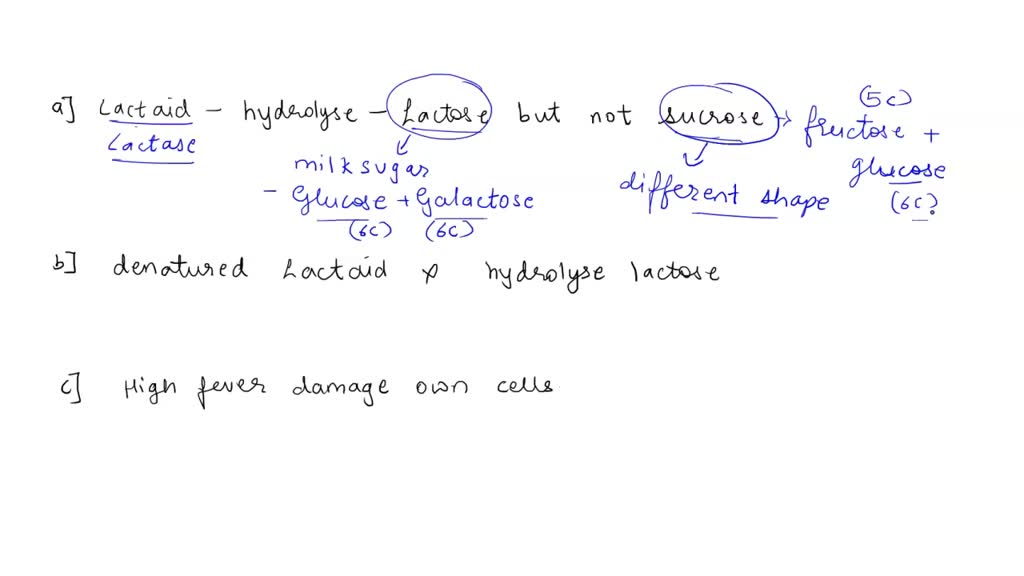 (5C)
a] Lactaid - hydrolyse - Lactose but not sucrose → fructose +
Lactase
milk sugar
glucose
- Glucose + Galactose
different shape
(6C)
(6C) (6C)
b] denatured Lactaid x hydrolyse lactose
c] High fever damage own cells